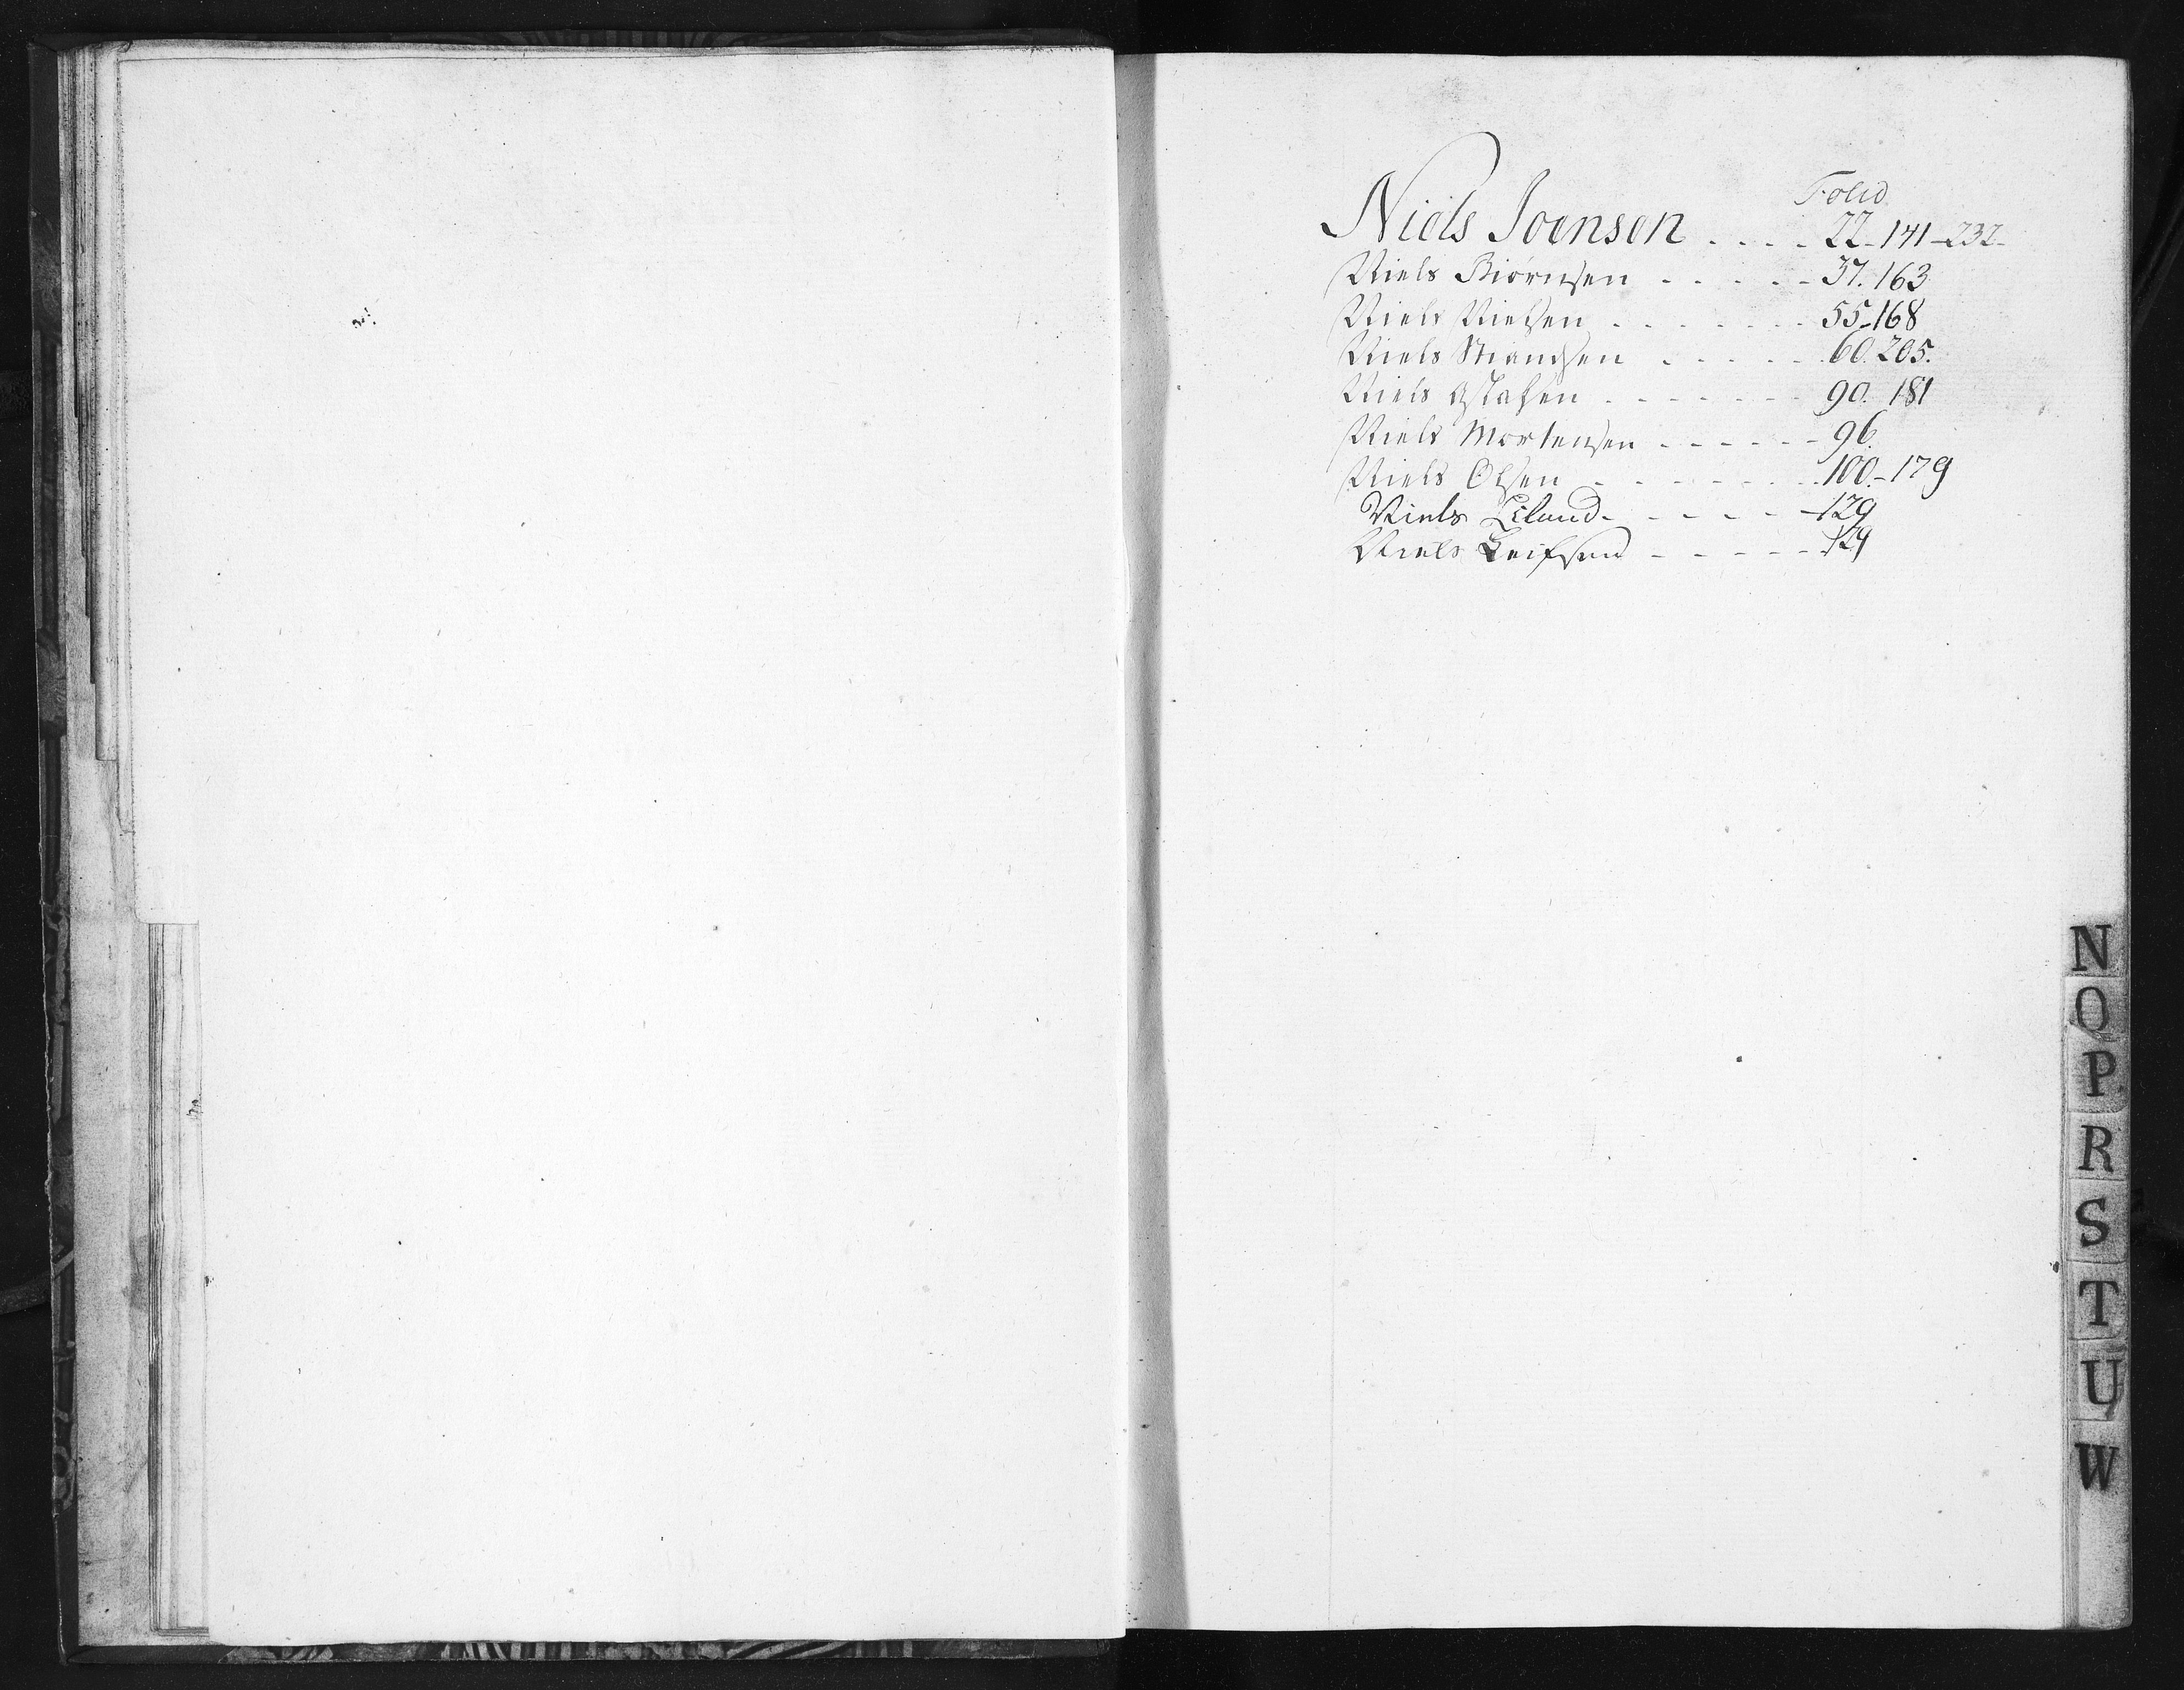 Folio
Niels Joensen . . . . 22-141-232-
Niels Biörnsen - - - - - 37.163
Niels Nielsen . . . . . . . 55-168
Niels . . . . . 60.205.
Niels - - - - - - 90. 181
Niels Mortensen - - - - - - 96.
Niels Olsen - - - - - - - 100.-179
Niels Eiland - - - - - - 129
Niels Leifsen - - - - - - 129
N
O
P
R
S
T
U
W